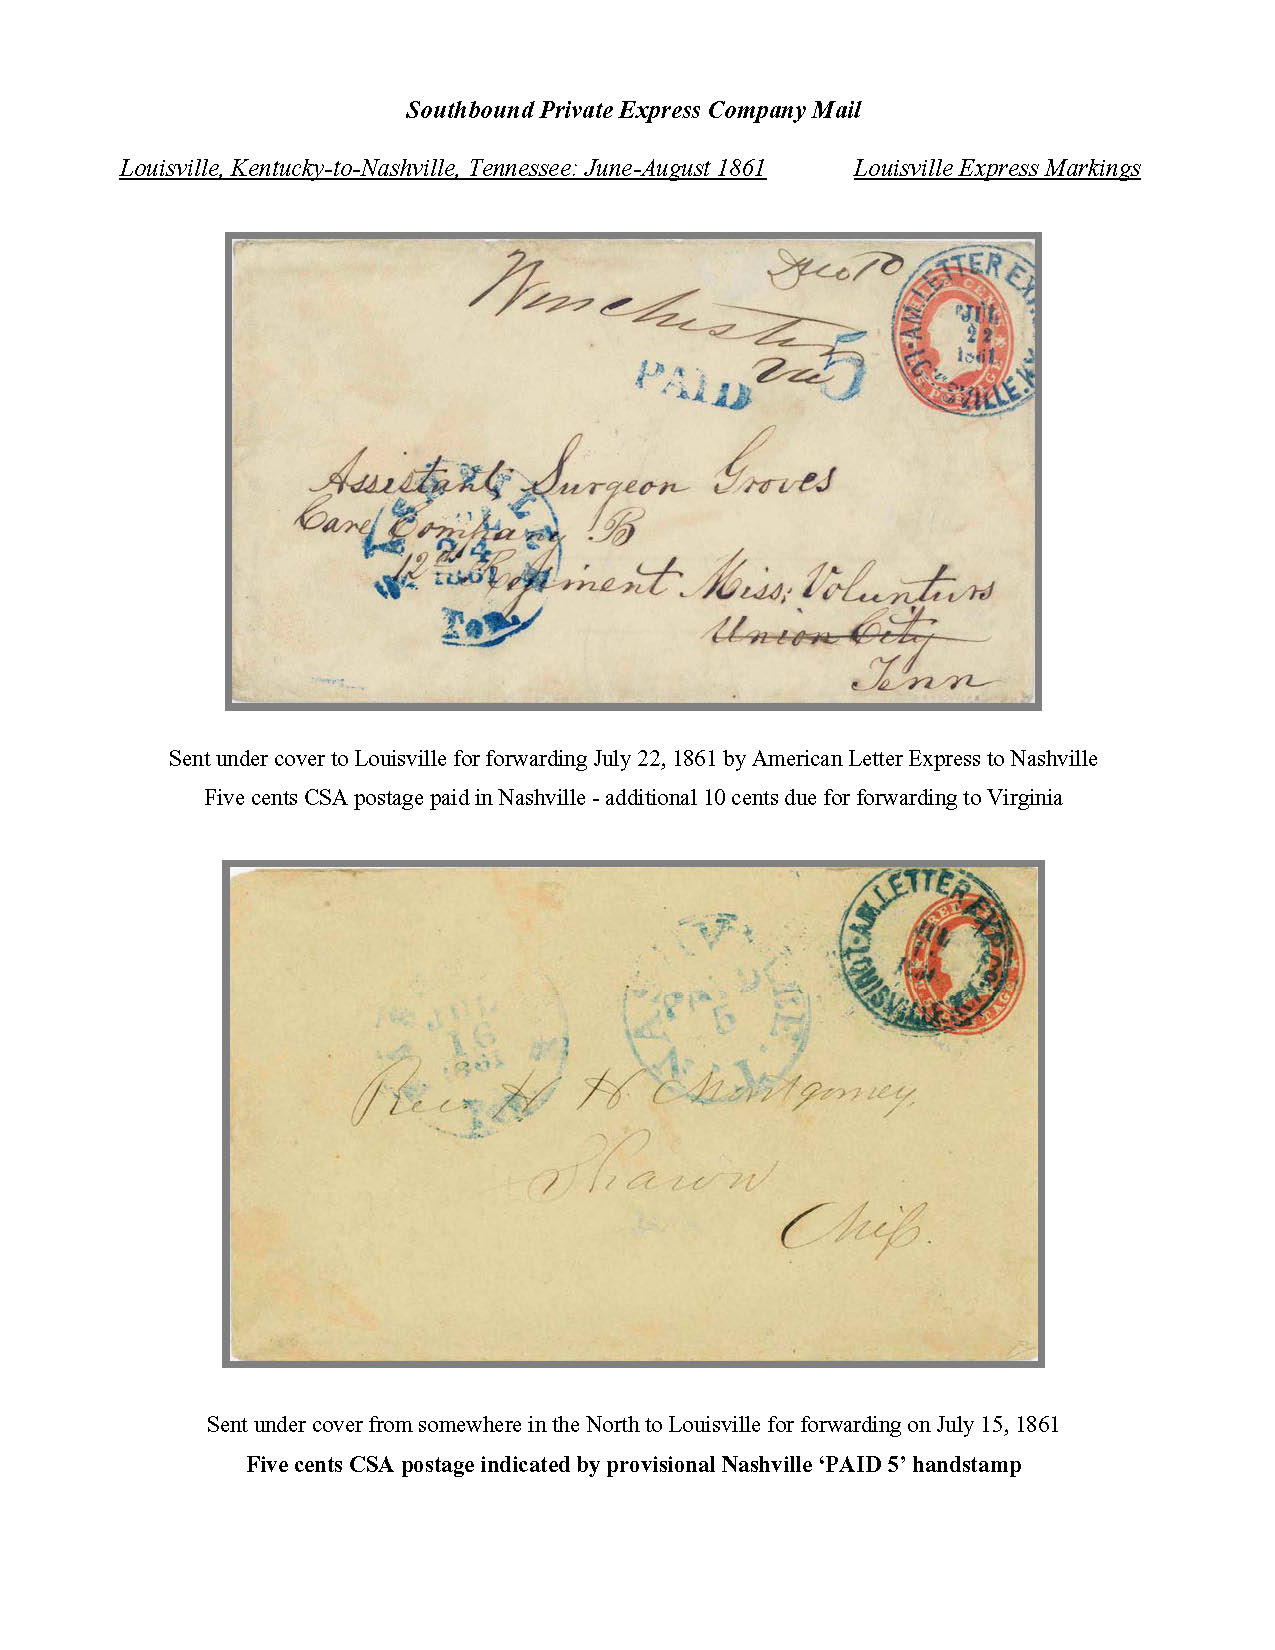 Southbound Private Express Company Mail
Louisville, Kentucky-to-Nashville, Tennessee: June-August 1861 Louisville Express Markings
Due 10
Winchester
Va
PAID 5
AM. LETTER EXP.
JUL
22
1861
LOUISVILLE. KY.
THREE CENTS
U.S. POSTAGE
Assistant Surgeon Groves
Care Company B
12th Regiment Miss; Volunturs
Union City
Tenn
NASHVILLE
24
1861
Ten.
Sent under cover to Louisville for forwarding July 22, 1861 by American Letter Express to Nashville
Five cents CSA postage paid in Nashville - additional 10 cents due for forwarding to Virginia
AM. LETTER EXP. CO.
JUL
15
LOUISVILLE. KY.
NASHVILLE. T.
PAID
5
JUL
16
1861
Rev H H Montgomey,
Sharon
Miss.
Sent under cover from somewhere in the North to Louisville for forwarding on July 15, 1861
Five cents CSA postage indicated by provisional Nashville ‘PAID 5’ handstamp